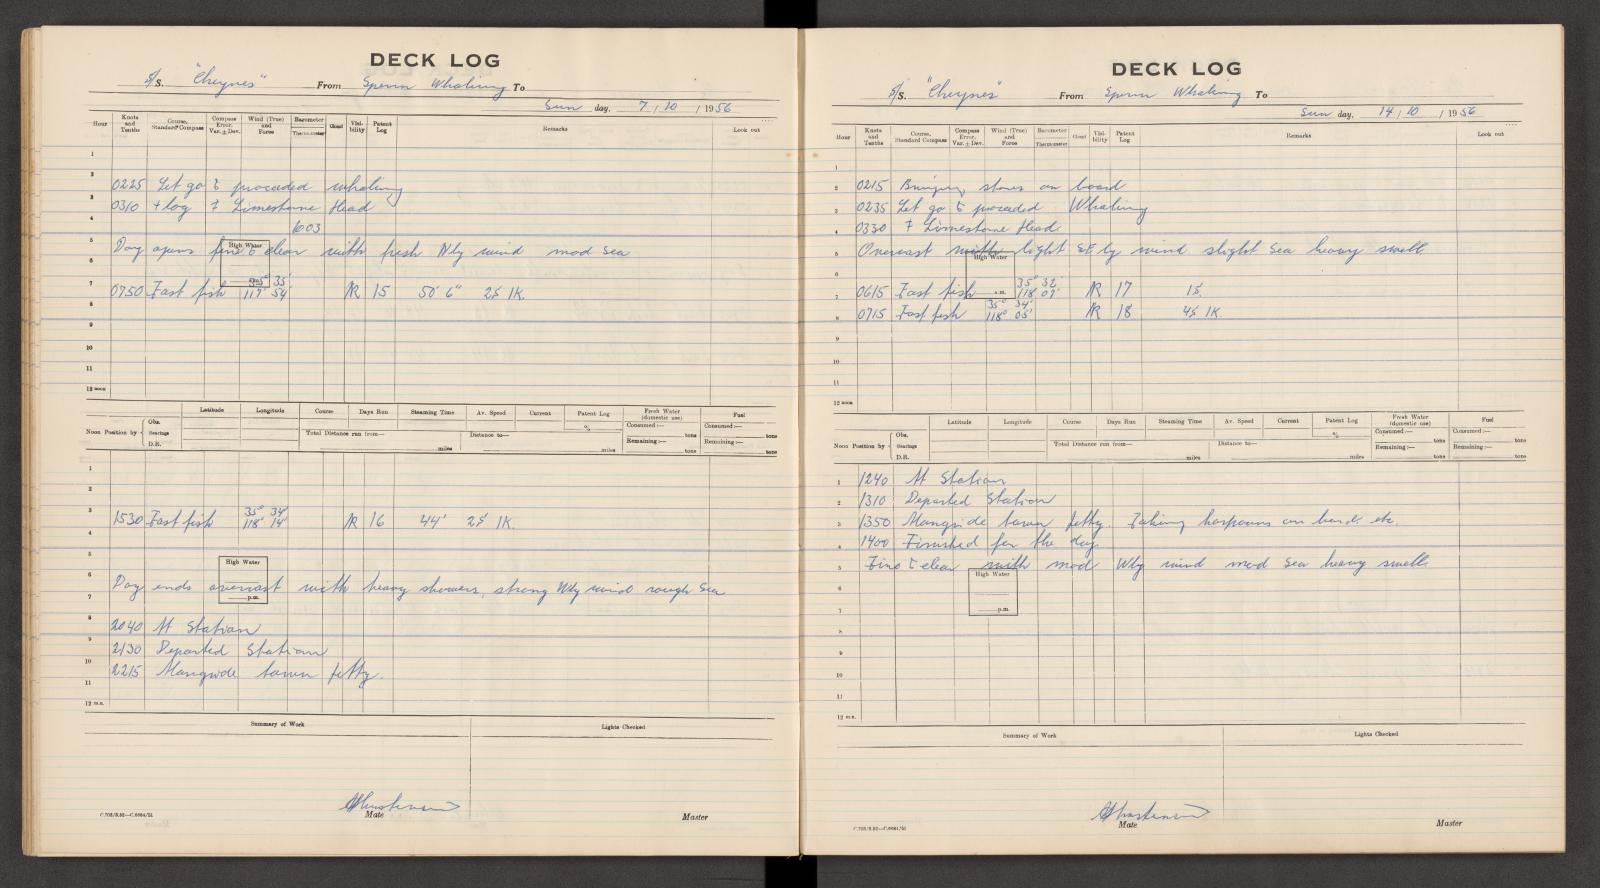 DECK LOG
S/S. "Cheynes" From Sperm Whaling To
Sun day, 7 / 10 / 1956
Hour Knots and Tenths Course, Standard Compass Compass Error. Var. ± Dev. Wind (True) and Force Barometer Thermometer Cloud Visibility Patent Log Remarks Look out
1
2
0225 Let go & proceeded whaling
3
0310 + log Limestone Head
4
1003
5
Day opens fine & clear with fresh Nly wind mod Sea
High Water
6
a.m.
7
0750 Fast fish 35° 35' 117° 54' 15 50' 6" 1K.
8
9
10
11
12 noon
Latitude Longitude Course Days Run Steaming Time Av. Speed Current Patent Log Fresh Water (domestic use) Fuel
Noon Position by Obs. Bearings D.R. % Consumed:— tons Consumed:— tons
Total Distance run from— miles Distance to— miles Remaining:— tons Remaining:— tons
1
2
3
1530 Fast fish 35° 34' 118° 14' 16 44' 1K.
4
5
High Water
6
Day ends overcast with heavy showers, strong Wly wind rough Sea
p.m.
7
8
2040 At Station
9
2130 Departed Station
10
2215 Alongside town jetty.
11
12 m.n.
Summary of Work Lights Checked
C.702/8.52—C.6664/51
Mate Master
DECK LOG
S/S. "Cheynes" From Sperm Whaling To
Sun day, 14 / 10 / 1956
Hour Knots and Tenths Course, Standard Compass Compass Error. Var. ± Dev. Wind (True) and Force Barometer Thermometer Cloud Visibility Patent Log Remarks Look out
1
2
0215 Bringing stores on board
3
0235 Let go & proceeded Whaling
4
0330 Limestone Head.
5
Overcast with light SE ly wind slight Sea heavy swell.
High Water
6
7
0615 Fast fish a.m. 35° 32' 118° 07' 17
8
0715 Fast fish 35° 34' 118° 05' 18 1K.
9
10
11
12 noon
Latitude Longitude Course Days Run Steaming Time Av. Speed Current Patent Log Fresh Water (domestic use) Fuel
Noon Position by Obs. Bearings D.R. % Consumed:— tons Consumed:— tons
Total Distance run from— miles Distance to— miles Remaining:— tons Remaining:— tons
1
1240 At Station
2
1310 Departed Station
3
1350 Alongside town jetty. Taking harpoons on board. etc.
4
1400 Finished for the day.
5
Fine & clear with mod Wly wind mod Sea heavy swell.
High Water
6
p.m.
7
8
9
10
11
12 m.n.
Summary of Work Lights Checked
C.702/8.52—C.6664/51
Mate Master